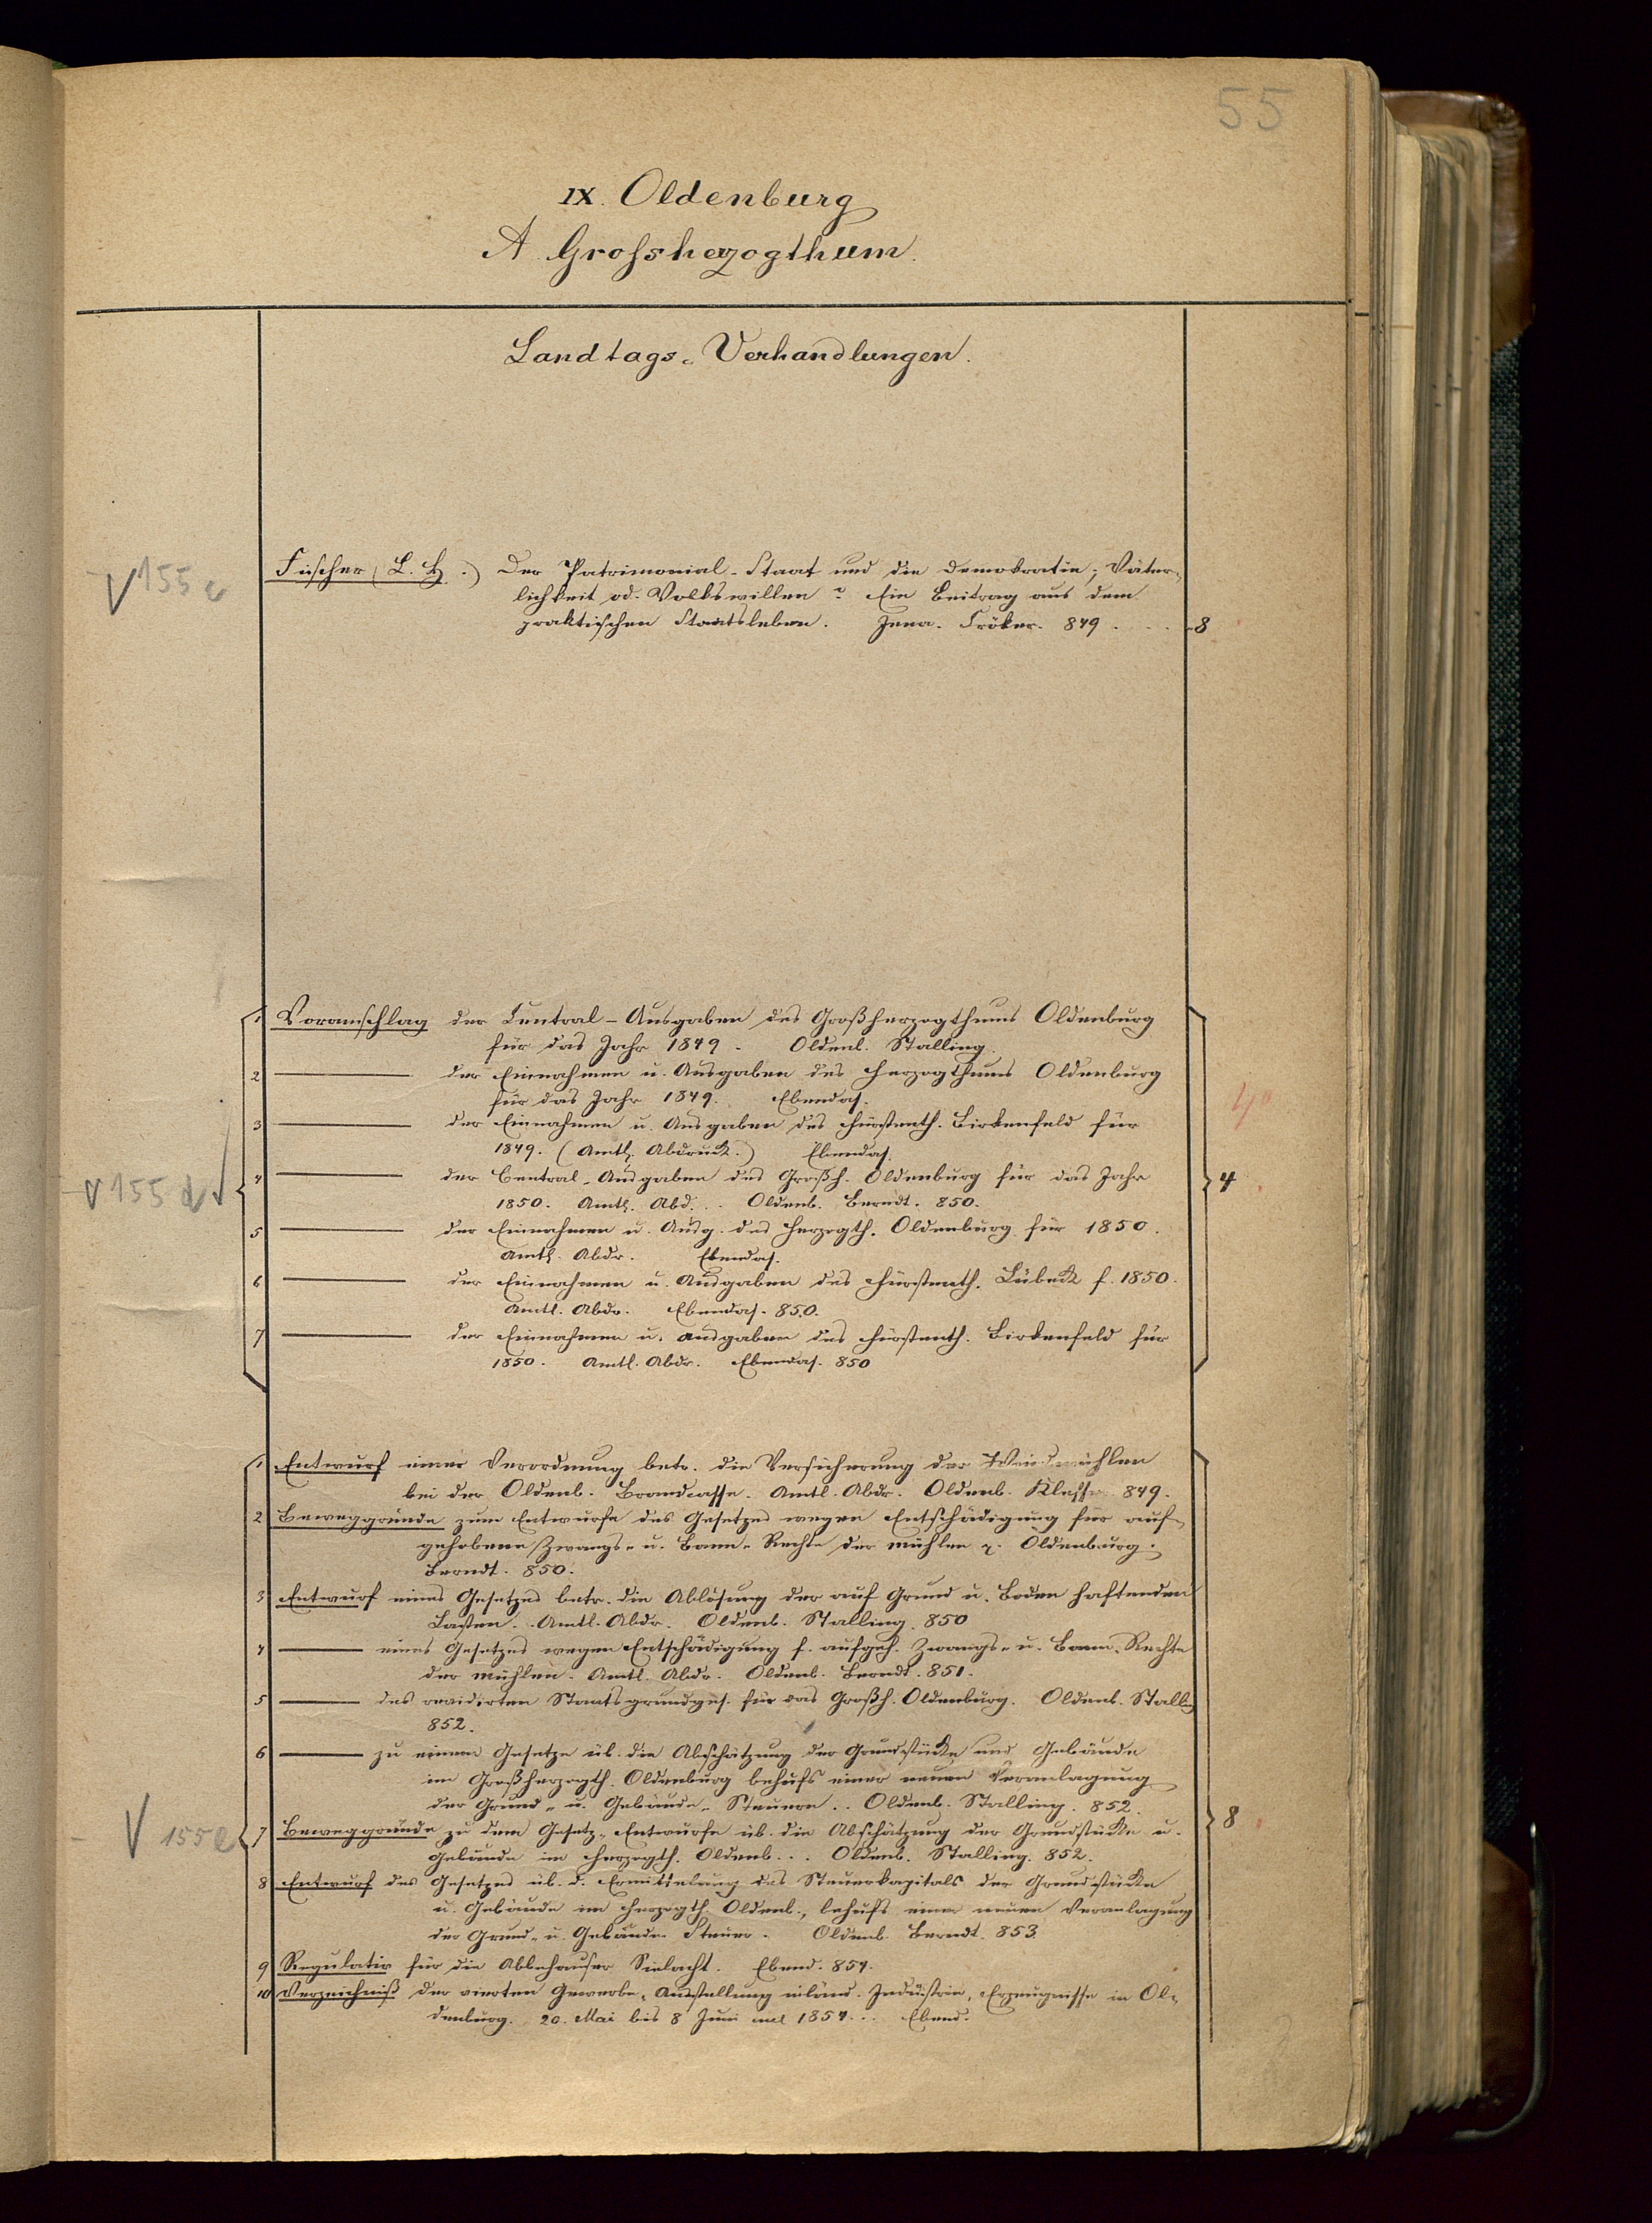 55
IX. Oldenburg
A. Grossherzogthum.
Landtags-Verhandlungen.
V 155 c
Fischer (L. H.) Der Patrimonial-Staat und die Demokratie; Väter-
lichkeit od. Volkswillen? Ein Beitrag aus dem
praktischen Staatsleben. Jena. 849 . . . 8
1 Voranschlag der Central-Ausgaben des Großherzogthums Oldenburg
für das Jahr 1849. Oldenb. Stalling.
2 ——— der Einnahmen u. Ausgaben des Herzogthums Oldenburg
für das Jahr 1849. Ebendas.
3 ——— der Einnahmen u. Ausgaben des Fürstenth. Birkenfeld für
1849. (Amtl. Abdruck.) Ebendas.
V 155 d
4 ——— der Central-Ausgaben des Großh. Oldenburg für das Jahr
4
1850. Amtl. Abd. . . Oldenb. Berndt. 850.
5 ——— der Einnahmen u. Ausg. des Herzogth. Oldenburg für 1850.
Amtl. Abdr. Ebendas.
6 ——— der Einnahmen u. Ausgaben des Fürstenth. Lübeck f. 1850.
Amtl. Abdr. Ebendas. 850.
7 ——— der Einnahmen u. Ausgaben des Fürstenth. Birkenfeld für
1850. Amtl. Abdr. Ebendas. 850
1 Entwurf einer Verordnung betr. die Versicherung der Windmühlen
bei der Oldenb. Brandcasse. Amtl. Abdr. Oldenb. 849.
2 Beweggründe zum Entwurfe des Gesetzes wegen Entschädigung für auf-
gehobene Zwangs- u. Bann-Rechte der Mühlen Oldenburg.
Berndt. 850.
3 Entwurf eines Gesetzes betr. die Ablösung der auf Grund u. Boden haftenden
Lasten. Amtl. Abdr. Oldenb. Stalling. 850
4 ——— eines Gesetzes wegen Entschädigung f. aufgeh. Zwangs- u. Bann-Rechte
der Mühlen. Amtl. Abdr. Oldenb. Berndt. 851.
5 ——— des revidirten Staatsgrundges. für das Großh. Oldenburg. Oldenb. Stalling
852.
6 ——— zu einem Gesetze üb. die Abschätzung der Grundstücke und Gebäude
im Großherzogth. Oldenburg behufs einer neuen Veranlagung
der Grund- u. Gebäude-Steuern . . Oldenb. Stalling. 852.
V 155 e
7 Beweggründe zu dem Gesetz-Entwurfe üb. die Abschätzung der Grundstücke u.
8
Gebäude im Herzogth. Oldenb. . . Oldenb. Stalling. 852.
8 Entwurf des Gesetzes üb. d. Ermittelung des Steuerkapitals der Grundstücke
u. Gebäude im Herzogth. Oldenb., behufs einer neuen Veranlagung
der Grund- u. Gebäude Steuer. Oldenb. Berndt. 853.
9 Regulativ für die Abbehauser Sielacht. Ebend. 854.
10 Verzeichniß der vierten Gewerbe-Ausstellung inländ. Industrie-Erzeugnisse in Ol-
denburg. 20. Mai bis 8 Juni incl 1854 . . Ebend.